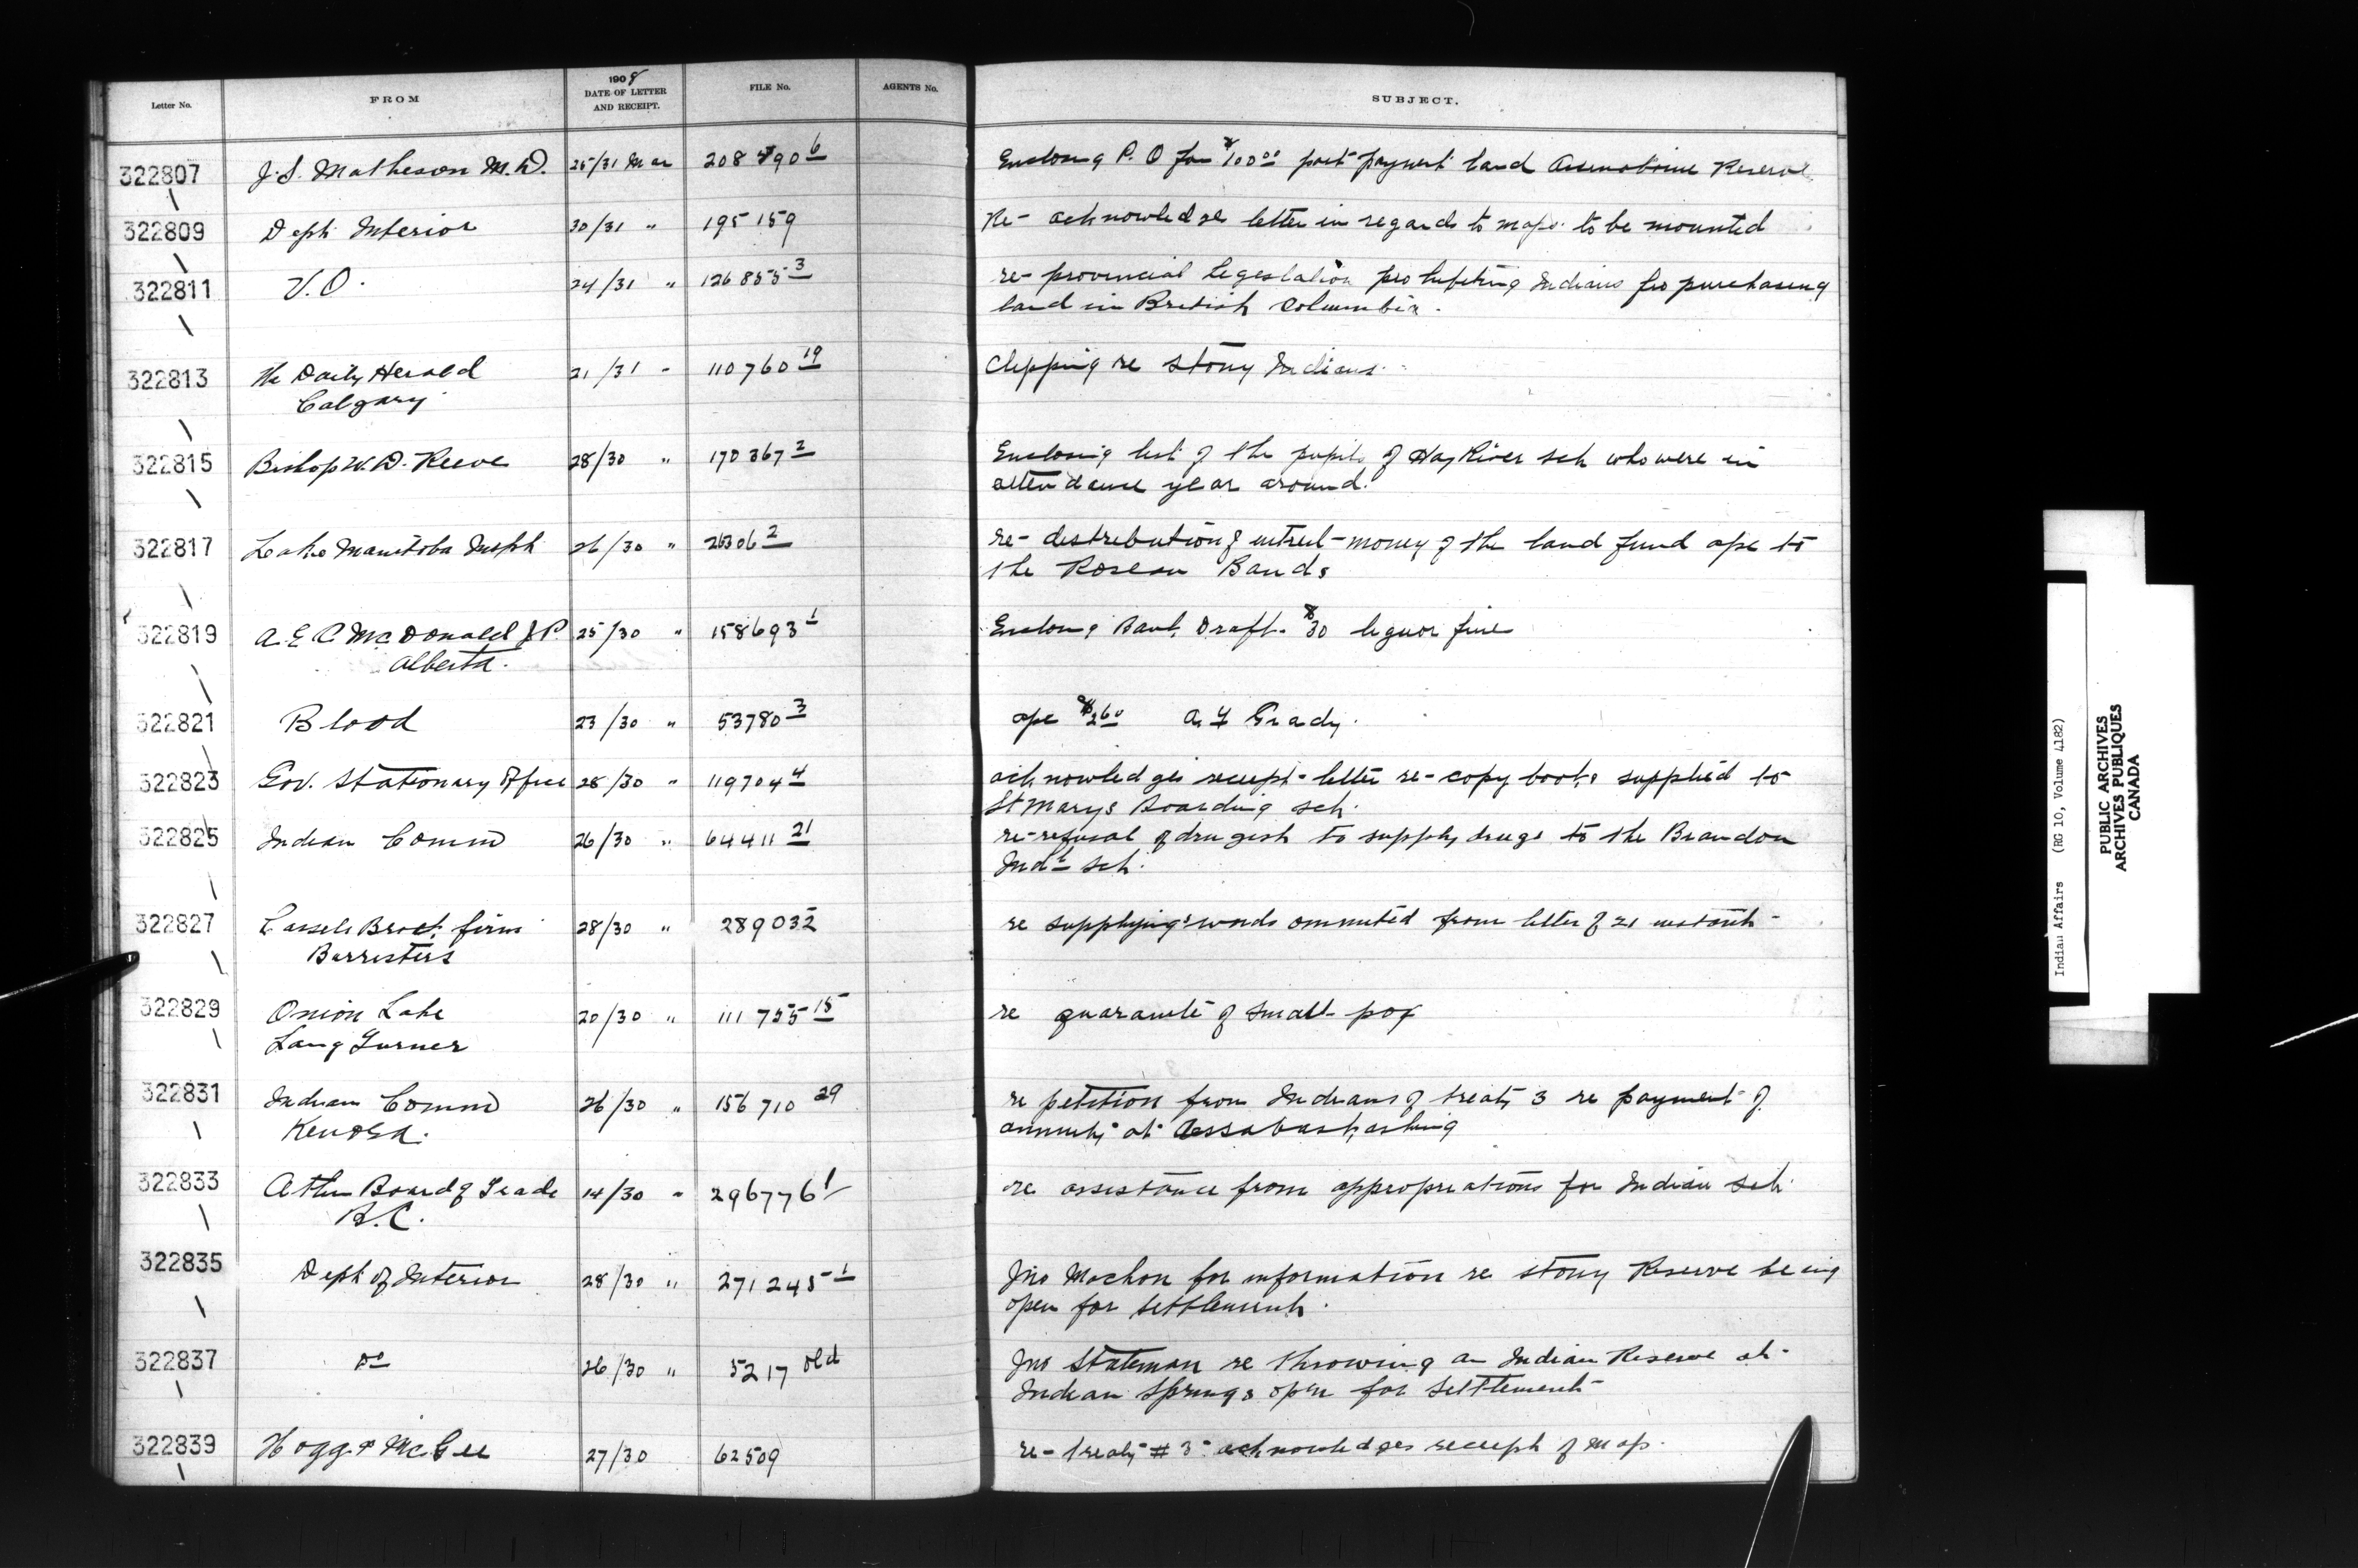 Letter No. FROM 1908 DATE OF LETTER AND RECEIPT. FILE No. AGENTS No. SUBJECT.
322807 J. S. Matheson M.D. 25/31 Mar 208790 6 Enclosing P. O for $100.00 part payment land Assiniboine Reserve
322809 Dept Interior 30/31 " 195159 Re- acknowledges letter in regards to maps to be mounted
322811 V.O. 24/31 " 126855 3 re- provincial legeslation prohibiting Indians fro purchasing
land in British Columbia.
322813 The Daily Herald 21/31 " 110760 19 Clipping re Stony Indians.
Calgary
322815 Bishop W. D. Reeve 28/30 " 170367 2 Enclosing list of the pupils of Hay River sch who were in
attendance year around.
322817 Lake Manitoba Inspt 26/30 " 26306 2 re- distribution of money of the land fund ope to
the Roseau Bands
322819 A. E. C. McDonald J.P. 25/30 " 158693 1 Enclosing Bank Draft $30 liquor fine
Alberta.
322821 Blood 23/30 " 53780 3 $2.60 Grady.
322823 Gov. Stationary Office 28/30 " 119704 4 acknowledges receipt letter re- copy books supplied to
St Marys Boarding sch.
322825 Indian Comm 26/30 " 64411 21 re- refusal of drugist to supply drugs to the Brandon
Indl sch.
322827 Cassels Brock firm 28/30 " 289032 re supplying words ommited from letter of 21
Barristers
322829 Onion Lake 20/30 " 111755 15 re of small pox
Lang Turner
322831 Indian Comm 26/30 " 156710 29 re petition from Indians of treaty 3 re payment of
Kenora. annuity at Assabaskashing
322833 Board of Trade 14/30 " 296776 1 re assistance from appropreations for Indian sch
B.C.
322835 Dept of Interior 28/30 " 271245 1 Jno Mochon for information re Stony Reserve being
open for settlement.
322837 Do 26/30 " 5217 old Jno Stateman re throwing an Indian Reserve at
Indian Springs open for settlement
322839 Hogg & McGee 27/30 62509 re- treaty # 3 acknowledges receipt of map.
Indian Affairs (RG 10, Volume 4182)
PUBLIC ARCHIVES
ARCHIVES PUBLIQUES
CANADA